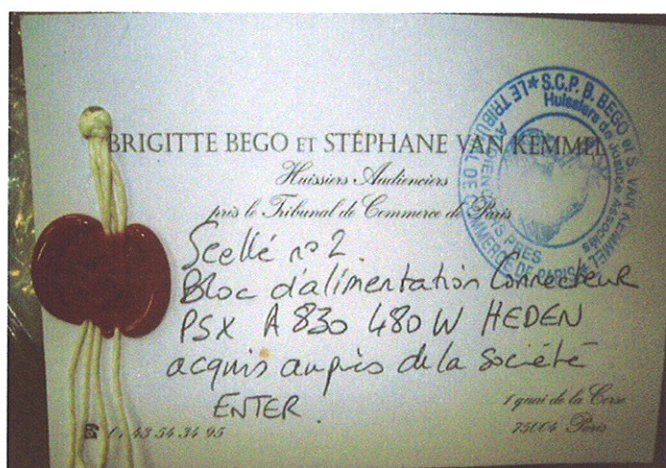 BRIGITTE BEGO ET STÉPHANE VAN KEMMEL
Huissiers Audienciers
près le Tribunal de Commerce de Paris
S.C.P. B. BEGO et S. VAN KEMMEL
Huissiers de Justice Associés
AUDIENCIERS PRÈS
LE TRIBUNAL DE COMMERCE DE PARIS
Scellé n° 2
Bloc d'alimentation Connecteur
PSX A 830 480 W HEDEN
acquis auprès de la Société
ENTER.
1 quai de la Corse
75004 Paris
43 54 34 95